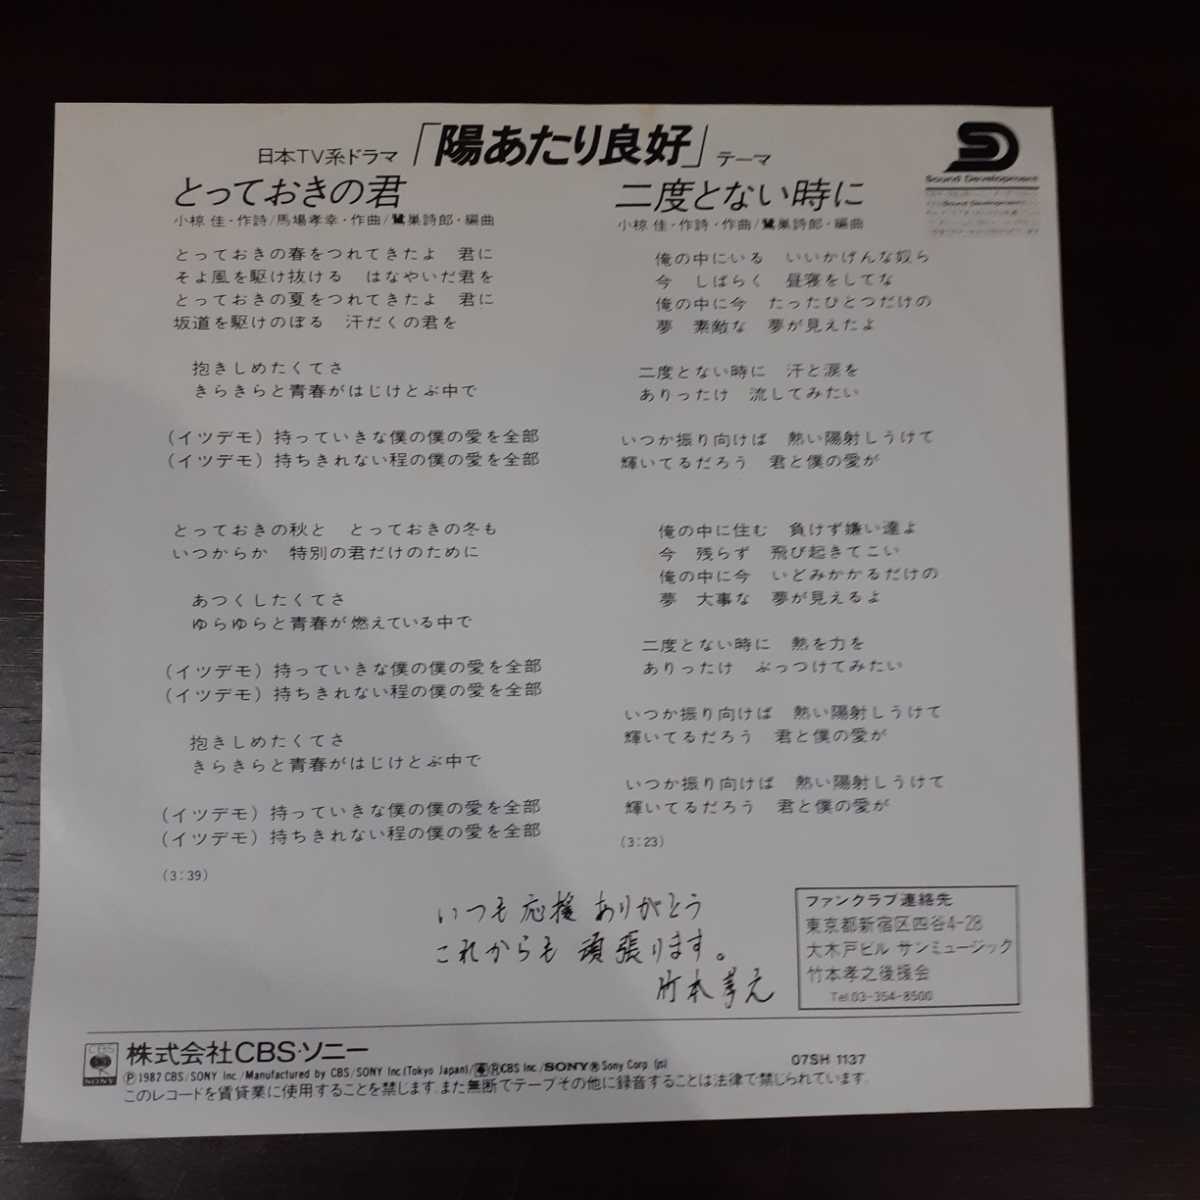 日本TV系ドラマ「陽あたり良好」テーマ
とっておきの君
小椋 佳・作詩/馬場孝幸・作曲/鷺巣詩郎・編曲
とっておきの春をつれてきたよ 君に
そよ風を駆け抜ける はなやいだ君を
とっておきの夏をつれてきたよ 君に
坂道を駆けのぼる 汗だくの君を
抱きしめたくてさ
きらきらと青春がはじけとぶ中で
(イツデモ) 持っていきな僕の僕の愛を全部
(イツデモ) 持ちきれない程の僕の愛を全部
とっておきの秋と とっておきの冬も
いつからか 特別の君だけのために
あつくしたくてさ
ゆらゆらと青春が燃えている中で
(イツデモ) 持っていきな僕の僕の愛を全部
(イツデモ) 持ちきれない程の僕の愛を全部
抱きしめたくてさ
きらきらと青春がはじけとぶ中で
(イツデモ) 持っていきな僕の僕の愛を全部
(イツデモ) 持ちきれない程の僕の愛を全部
(3:39)
二度とない時に
小椋 佳・作詩・作曲/鷺巣詩郎・編曲
俺の中にいる いいかげんな奴ら
今 しばらく 昼寝をしてな
俺の中に今 たったひとつだけの
夢 素敵な 夢が見えたよ
二度とない時に 汗と涙を
ありったけ 流してみたい
いつか振り向けば 熱い陽射しうけて
輝いてるだろう 君と僕の愛が
俺の中に住む 負けず嫌い達よ
今 残らず 飛び起きてこい
俺の中に今 いどみかかるだけの
夢 大事な 夢が見えるよ
二度とない時に 熱を力を
ありったけ ぶっつけてみたい
いつか振り向けば 熱い陽射しうけて
輝いてるだろう 君と僕の愛が
いつか振り向けば 熱い陽射しうけて
輝いてるだろう 君と僕の愛が
(3:23)
SD
Sound Development
Sound Development
いつも応援ありがとう
これからも頑張ります。
竹本孝之
ファンクラブ連絡先
東京都新宿区四谷4-28
大木戸ビル サンミュージック
竹本孝之後援会
Tel.03-354-8500
CBS
SONY
株式会社CBS・ソニー
Ⓟ1982 CBS/SONY Inc./Manufactured by CBS/SONY Inc.(Tokyo Japan)/ ®CBS Inc./SONY® Sony Corp.
07SH 1137
このレコードを賃貸業に使用することを禁じます.また無断でテープその他に録音することは法律で禁じられています.